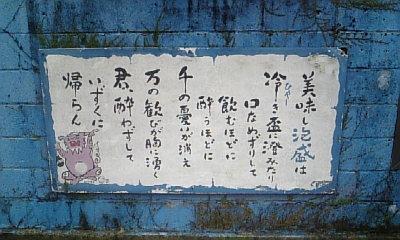 美味し泡盛は
冷しき盃に澄みたり
口なめずりして
飲むほどに
酔うほどに
千の憂いが消え
万の歓びが胸に湧く
君、酔わずして
いずくに
帰らん